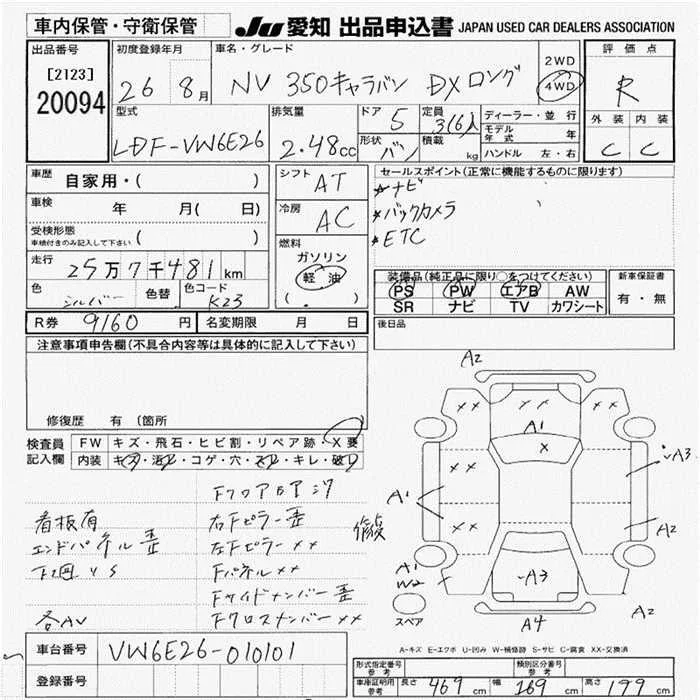 車内保管・守衛保管
JU 愛知 出品申込書 JAPAN USED CAR DEALERS ASSOCIATION
出品番号 初度登録年月 車名・グレード 2WD 評価点
[2123] 26 8月 NV 350キャラバン DXロング 4WD R
20094
型式 排気量 ドア 5 定員 3(6)人 ディーラー・並行 外装 内装
LDF-VW6E26 2.48cc 形状 バン 積載 kg モデル年式 年
ハンドル 左・右 C C
車歴 自家用・( ) シフト AT セールスポイント(正常に機能するものに限ります)
車検 年 月( 日) 冷房 AC *ナビ
*バックカメラ
受検形態 車検付きのみ記入して下さい ( ) 燃料 *ETC
走行 25万7千481km ガソリン
軽油
( )
色 シルバー 色替 色コード K23
装備品(純正品に限り○をつけてください) 新車保証書
PS PW エアB AW 有・無
SR ナビ TV カワシート
R券 9160円 名変期限 月 日 後日品
注意事項申告欄(不具合内容等は具体的に記入して下さい)
修復歴 有 (箇所 )
検査員 FW キズ・飛石・ヒビ割・リペア跡・X要
記入欄 内装 キズ・汚れ・コゲ・穴・スレ・キレ・破れ
看板有
エンドパネル歪
下廻りS
各AV
右Fピラー歪
左Fピラーxx
Fパネルxx
Fサイドメンバー歪
Fクロスメンバーxx
修復
A2
xx xx xx
A1
x
xx
A3
A1
xx
A2
A1
W2
A3
スペア
A4
A2
A-キズ E-エクボ U-凹み W-補修跡 S-サビ C-腐食 XX-交換済
車台番号 VW6E26-010101
登録番号
形式指定番号 参考 類別区分番号 参考
車庫証明用 参考 長さ 469cm 幅 169cm 高さ 199cm